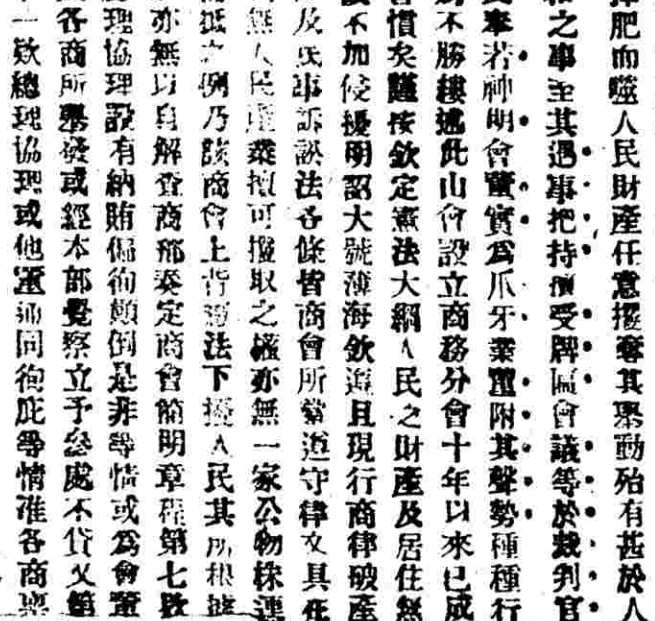 肥而噬人民財產任意攫奪其舉動殆有甚於人
之事至其遇事把持受牌匾會議等於裁判官
奉若神明會董實爲爪牙業董附其聲勢種種行
不勝縷述此山會設立商務分會十年以來已成
慣矣謹按欽定憲法大綱人民之財產及居住無
不加侵擾明詔大號薄海欽遵且現行商律破產
及民事訴訟法各條皆商會所當遵守律文具在
無人民產業擅可攫取之權亦無一家公物株連
抵之例乃該商會上背法下擾人民其所根據
亦無以自解查商部奏定商會簡明章程第七款
理協理設有納賄偏徇顛倒是非等情或爲會董
各商所舉發或經本部覺察立予參處不貸又第
一款總理協理或他董通同徇庇等情准各商稟